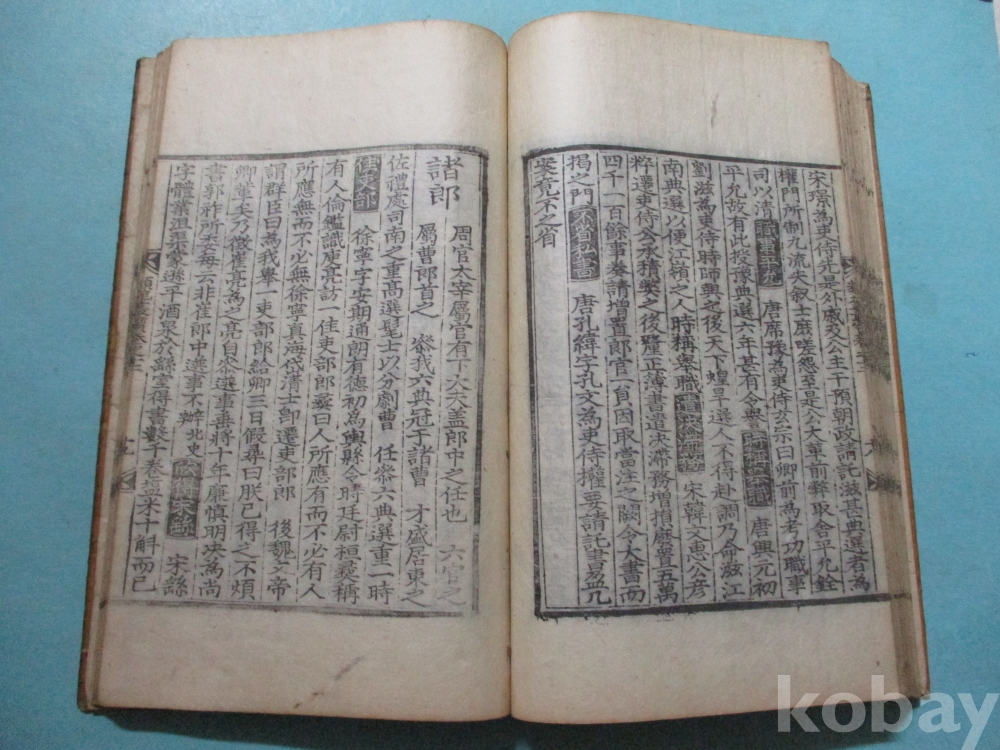 宋璟為吏侍先是外戚及公主干預朝政請託滋甚典選者為
權門所制九流失敘士庶嗟怨至是公大革前弊取舍平允銓
司以清 職事平允 唐席豫為吏侍玄宗曰卿前為考功職事
平允故有此授豫典選六年甚有令譽 唐興元初
劉滋為吏侍時師興之後天下蝗旱選人不得赴調乃命滋江
南典選以便江嶺之人時稱舉職 宋韓文惠公彦
粹選吏侍公水積弊之後隆正薄書遣决滯務增損麻置五萬
四千一百餘事奏請增置郎官一員因取當注之闕令大書而
揭之門 不啓私書 唐孔緯字孔文為吏侍權要請託書昜几
案竟不之省
諸郎 周官太宰屬官有下大夫盖郎中之任也 六官之
屬曹郎首之 亝我六典冠于諸曹 才盛居東之
佐禮處司南之重高選髦士以分劇曹 任亝六典選重一時
佳吏部 徐寧字安期通朗有德初為輿縣令時廷尉桓彛稱
有人倫鑑識庾亮訪一佳吏部郎彛曰人所應有而不必有人
所應無而不必無徐寧真海岱清士卽遷吏部郎 後魏文帝
謂群臣曰為我舉一吏部郎給卿三日假尋曰朕已得之不煩
卿輩矣乃徵崔亮為之亮自亝選事垂將十年廉慎明决為尚
書郭祚所委每云非崔郎中選事不辦北史 宋繇
字體業沮渠蒙遜平酒泉於繇室得書數千卷塩米十斛而已